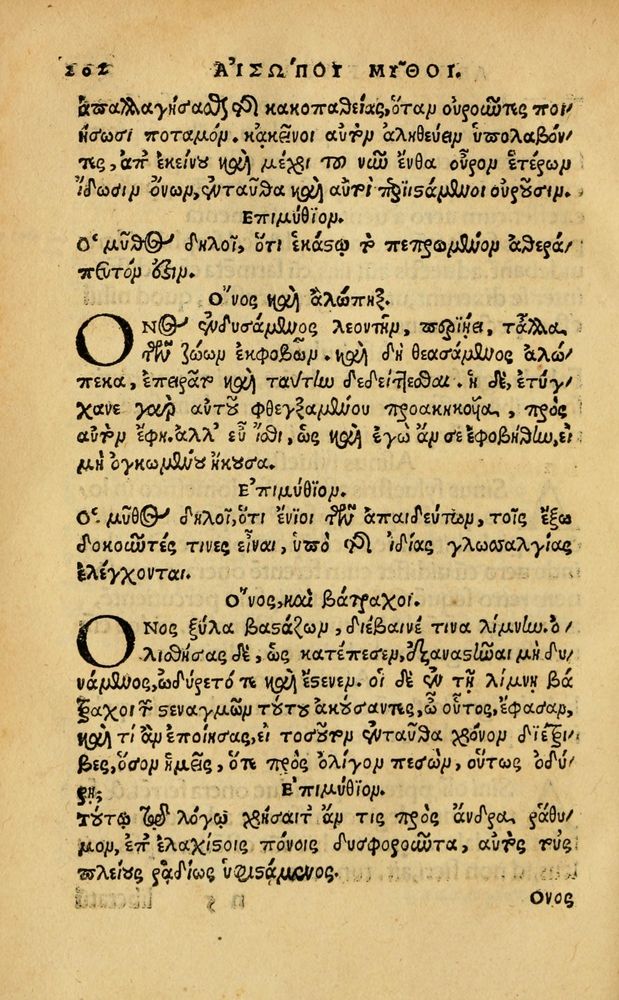 202 ΑἸΣΩΠΟΥ ΜΥΘΟΙ.
ἀπαλλαγήσαθς τῆς κακοπαθείας, ὅταν οὐροῶντες ποι/
ήσωσι ποταμόν. κἀκεῖνοι αὐτὸν ἀληθεύειν ὑπολαβόν/
τες, ἀπ' ἐκείνου καὶ μέχρι τοῦ νῦν ἔνθα οὖρον ἑτέρων
ἴδωσιν ὄνων, ἐνταῦθα καὶ αὐτοὶ περιϊστάμενοι οὐροῦσιν.
Ἐπιμύθιον.
Ὁ μῦθος δηλοῖ, ὅτι ἑκάστῳ τὸ πεπρωμένον ἀθερά/
πευτόν ἐστιν.
Ὄνος καὶ ἀλώπηξ.
ΟΝος ἐνδυσάμενος λεοντῆν, περιῄει, τἄλλα
τῶν ζώων ἐκφοβῶν. καὶ δὴ θεασάμενος ἀλώ/
πεκα, ἐπειρᾶτο καὶ ταύτην δεδείττεσθαι. ἡ δὲ, ἐτύγ/
χανε γὰρ αὐτοῦ φθεγξαμένου προακηκουῖα, πρὸς
αὐτὸν ἔφη. ἀλλ' εὖ ἴσθι, ὡς καὶ ἐγὼ ἄν σε ἐφοβήθην, εἰ
μὴ ὀγκωμένου ἤκουσα.
Ἐπιμύθιον.
Ὁ μῦθος δηλοῖ, ὅτι ἔνιοι τῶν ἀπαιδεύτων, τοῖς ἔξω
δοκοῦντές τινες εἶναι, ὑπὸ τῆς ἰδίας γλωσσαλγίας
ἐλέγχονται.
Ὄνος, καὶ βάτραχοι.
ΟΝος ξύλα βαστάζων, διέβαινέ τινα λίμνην. ὀ/
λισθήσας δὲ, ὡς κατέπεσεν, ἐξαναστῆναι μὴ δυ/
νάμενος, ὠδύρετό τε καὶ ἔστενεν. οἱ δὲ ἐν τῇ λίμνῃ βά
τραχοι τῶν στεναγμῶν τούτου ἀκούσαντες, ὦ οὗτος, ἔφασαν,
καὶ τί ἂν ἐποίησας, εἰ τοσοῦτον ἐνταῦθα χρόνον διέτρι/
βες, ὅσον ἡμεῖς, ὅτε πρὸς ὀλίγον πεσὼν, οὕτως ὀδύ/
ρῃ; Ἐπιμύθιον.
τούτῳ τῷ λόγῳ χρήσαιτ' ἄν τις πρὸς ἄνδρα ῥάθυ/
μον, ἐπ' ἐλαχίστοις πόνοις δυσφοροῦντα, αὐτὸς τοὺς
πλείους ῥαδίως ὑφιστάμενος.
Ὄνος